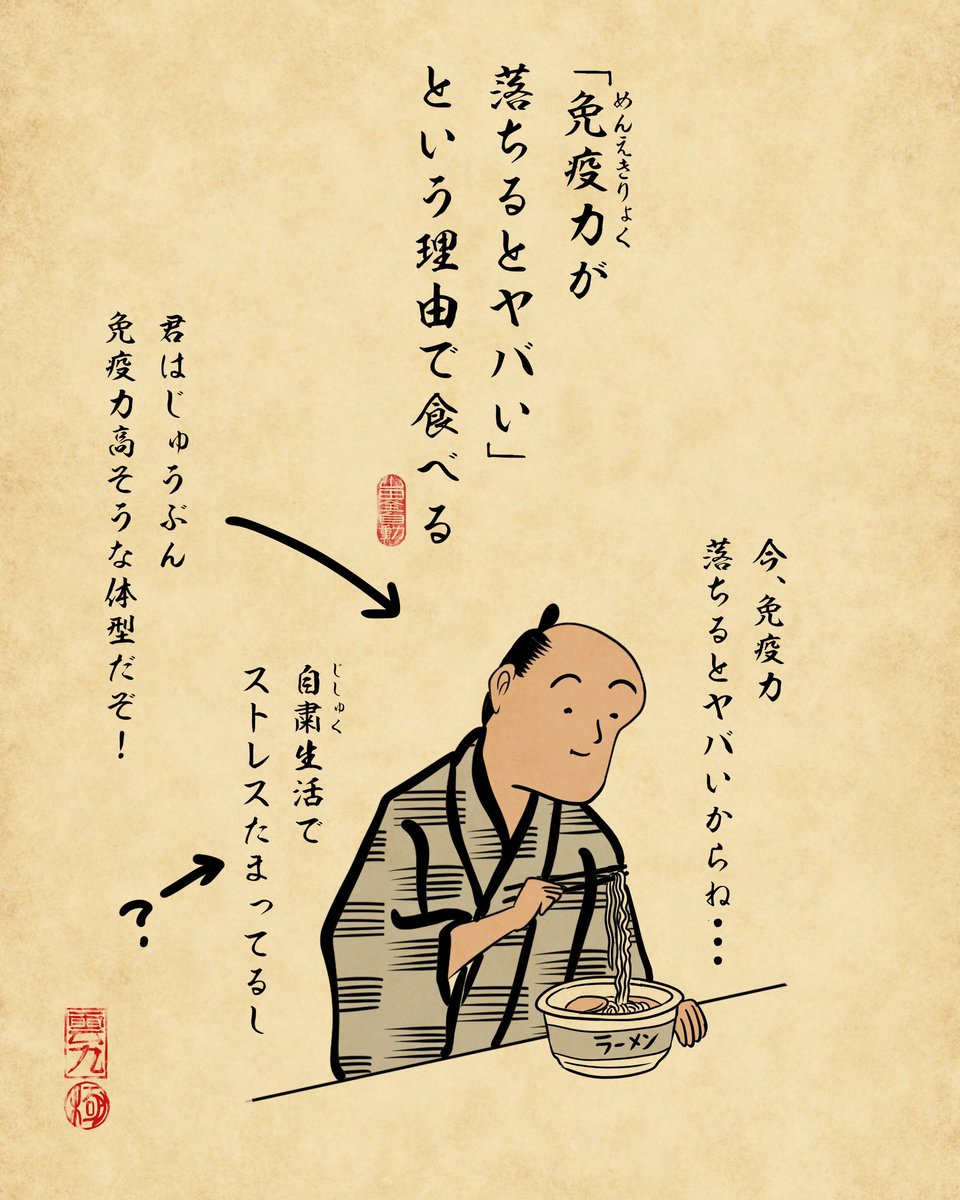 「免疫力が
めんえきりょく
落ちるとヤバい」
という理由で食べる
今、免疫力
落ちるとヤバいからね・・・
君はじゅうぶん
免疫力高そうな体型だぞ！
自粛生活で
じしゅく
ストレスたまってるし
？
ラーメン